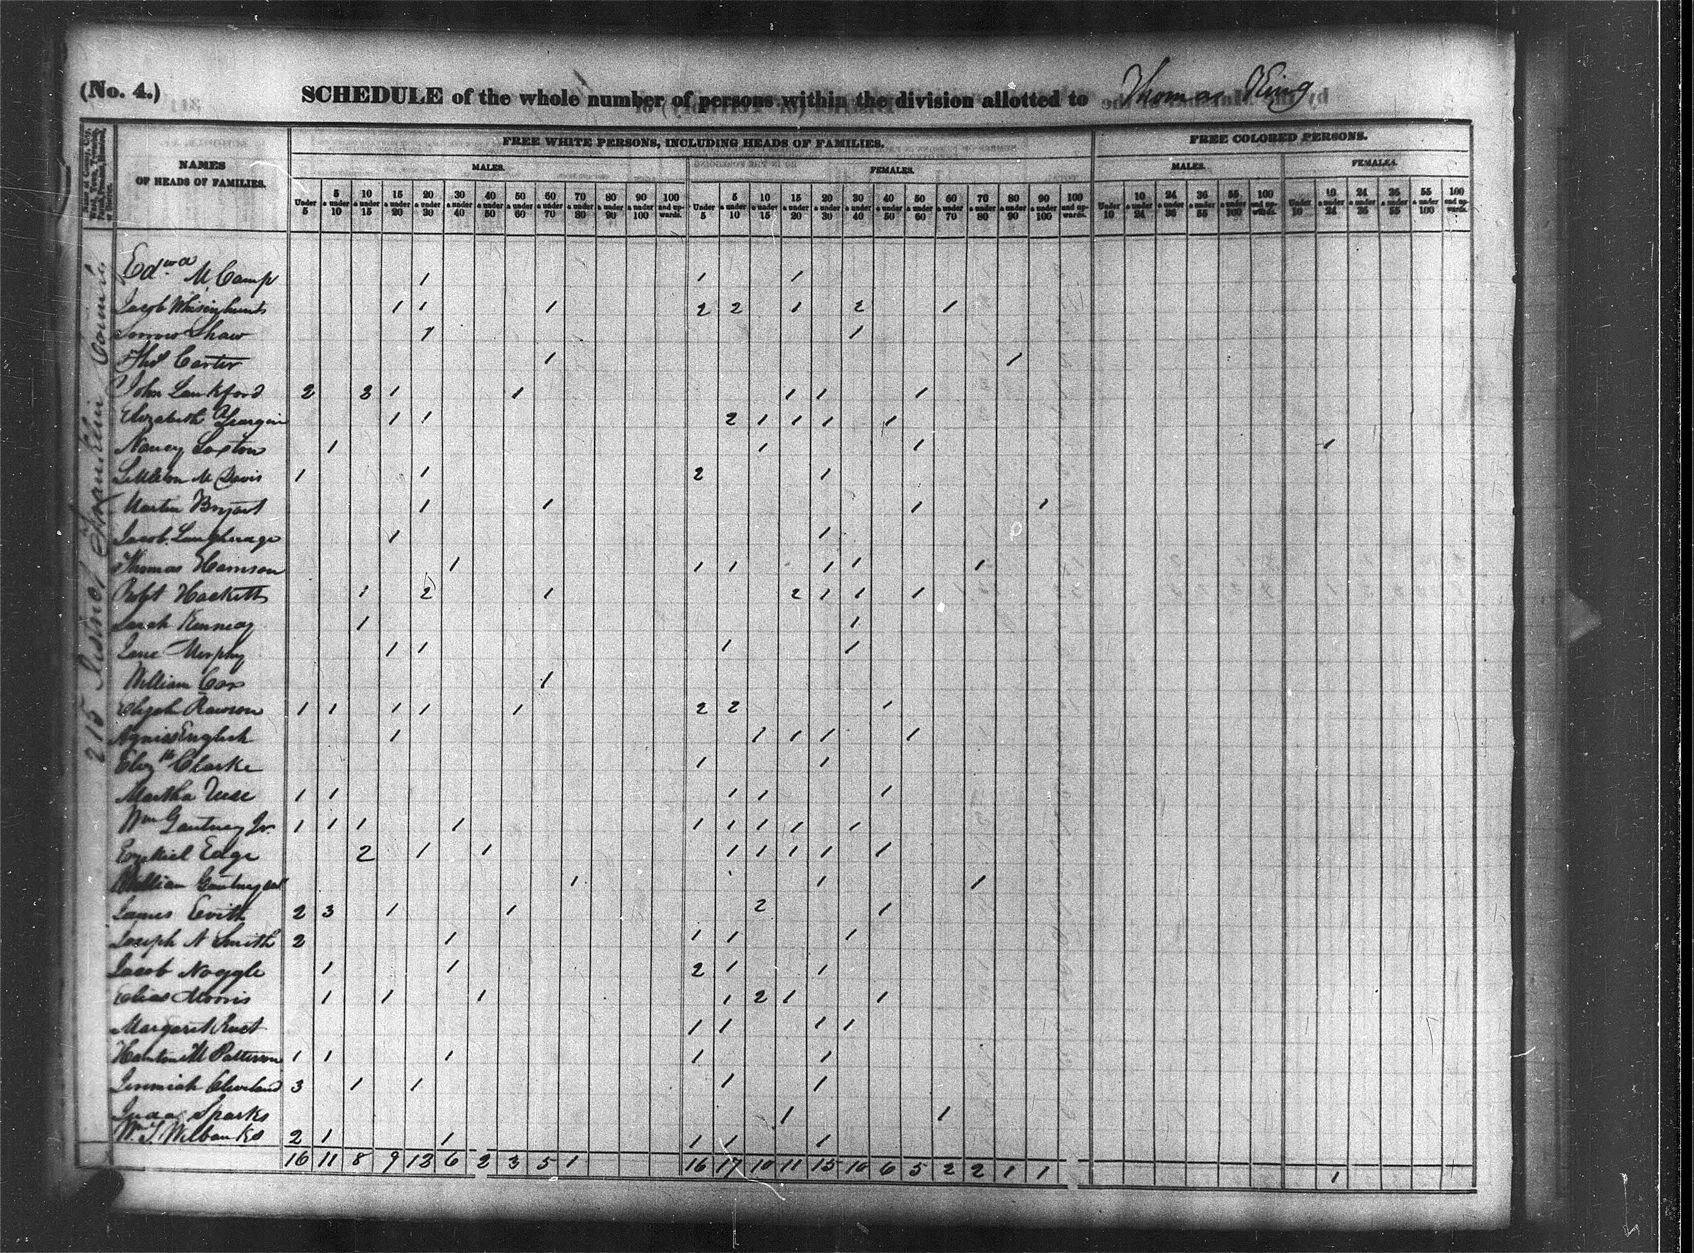 (No. 4.)
SCHEDULE of the whole number of persons within the division allotted to Thomas King
Name of County, City, Ward, Town, Township, Parish, Precinct, Hundred, or District.
NAMES OF HEADS OF FAMILIES.
FREE WHITE PERSONS, INCLUDING HEADS OF FAMILIES.
FREE COLORED PERSONS.
MALES.
FEMALES.
MALES.
FEMALES.
Under 5 | 5 & under 10 | 10 & under 15 | 15 & under 20 | 20 & under 30 | 30 & under 40 | 40 & under 50 | 50 & under 60 | 60 & under 70 | 70 & under 80 | 80 & under 90 | 90 & under 100 | 100 and upwards. | Under 5 | 5 & under 10 | 10 & under 15 | 15 & under 20 | 20 & under 30 | 30 & under 40 | 40 & under 50 | 50 & under 60 | 60 & under 70 | 70 & under 80 | 80 & under 90 | 90 & under 100 | 100 and upwards. | Under 10 | 10 & under 24 | 24 & under 36 | 36 & under 55 | 55 & under 100 | 100 and upwards. | Under 10 | 10 & under 24 | 24 & under 36 | 36 & under 55 | 55 & under 100 | 100 and upwards.
215 District Franklin County
Edwd M Camp 1 1 1
Jacob 1 1 1 2 2 1 2 1
Shaw 1 1
Thos Carter 1 1
John Lankford 2 3 1 1 1 1 1
Elizabeth 1 1 2 1 1 1 1
Nancy Saxton 1 1 1 1
Littleton M Davis 1 1 2 1
Martin Bryant 1 1 1 1
Jacob 1 1
Thomas Harrison 1 1 1 1 1 1
Robt Hacketts 1 2 1 2 1 1 1
Sarah Kenneday 1 1
Lane Murphy 1 1 1 1
William Cox 1
Elijah Rawson 1 1 1 1 1 2 2 1
Agness English 1 1 1 1 1
Elizth Clarke 1 1
Martha 1 1 1 1 1
Wm Gantney Jr. 1 1 1 1 1 1 1 1 1
Ezekiel Edge 2 1 1 1 1 1 1 1
William 1 1 1
James Evith 2 3 1 1 2 1
Joseph N Smith 2 1 1 1 1
Jacob Noggle 1 1 2 1 1
Elias Morris 1 1 1 1 2 1 1
Margaret 1 1 1 1
M Patterson 1 1 1 1 1
Jeremiah Cleveland 3 1 1 1 1
Sparks 1 1
Wm T Wilbanks 2 1 1 1 1 1
16 11 8 9 13 6 2 3 5 1 16 17 10 11 15 10 6 5 2 2 1 1 1